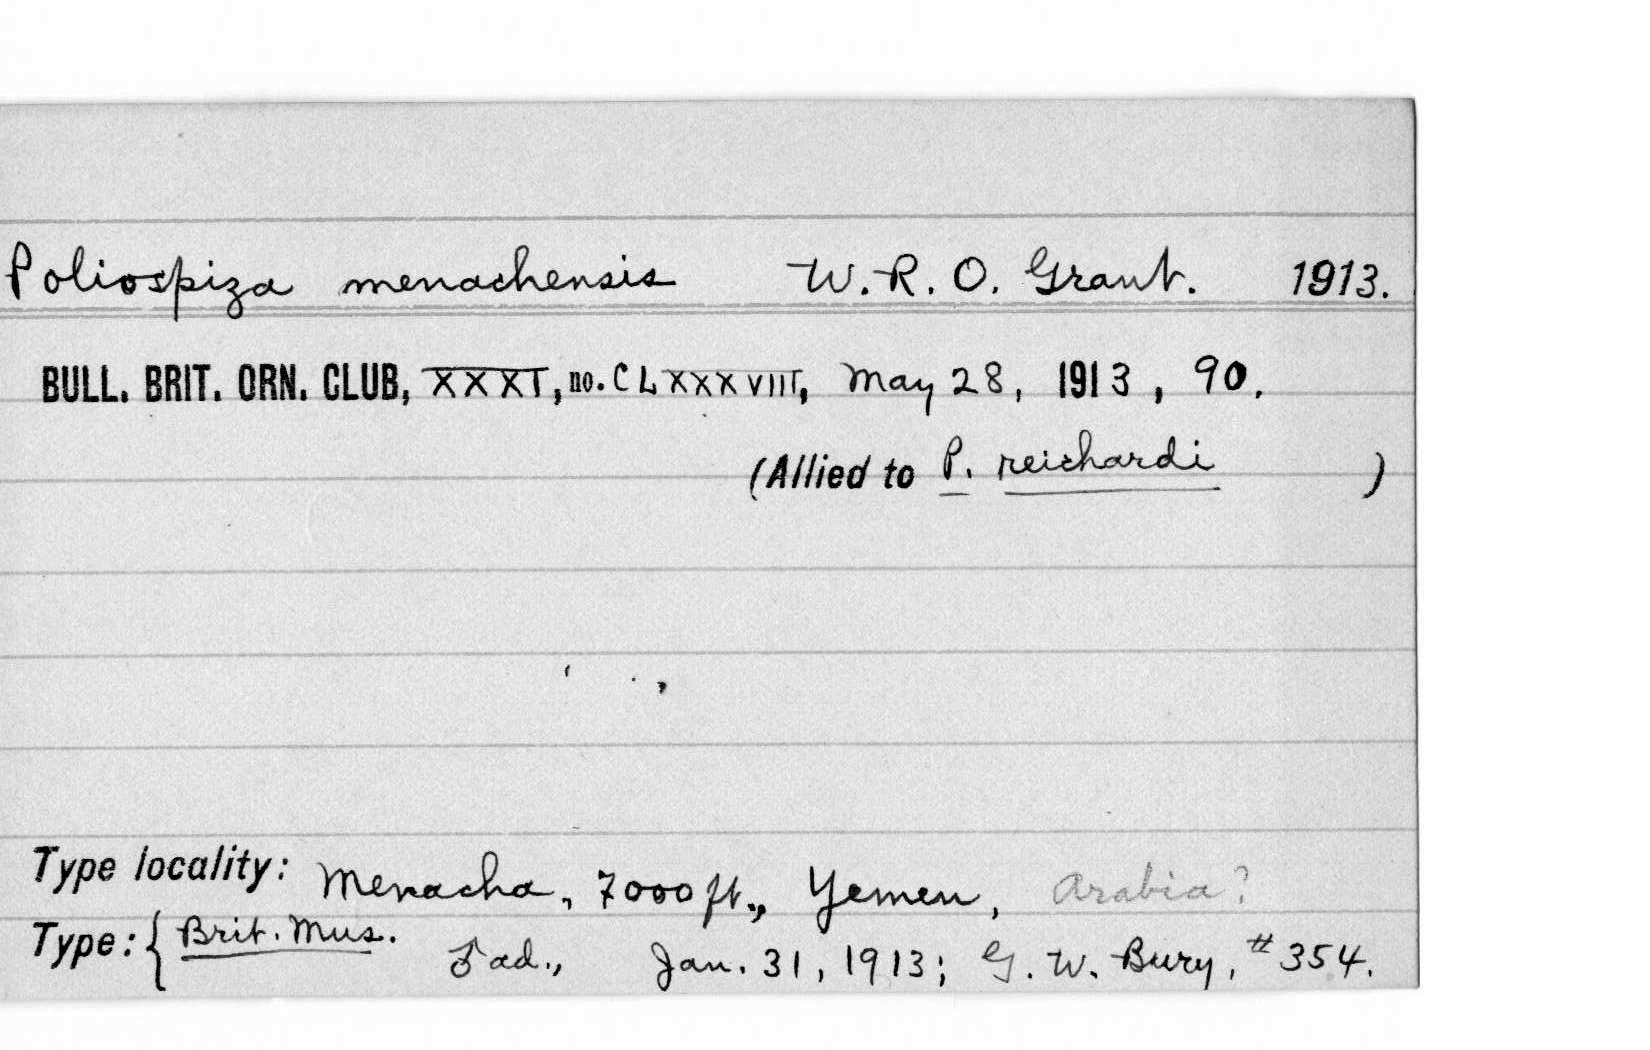 Poliospiza menachensis W. R. O. Grant. 1913.
BULL. BRIT. ORN. CLUB, XXXI, no. CLXXXVIII, May 28, 1913, 90.
(Allied to P. reichardi )
Type locality: Menacha, 7000 ft., Yemen, Arabia?
Type: { Brit. Mus. ♂ ad., Jan. 31, 1913; G. W. Bury, #354.